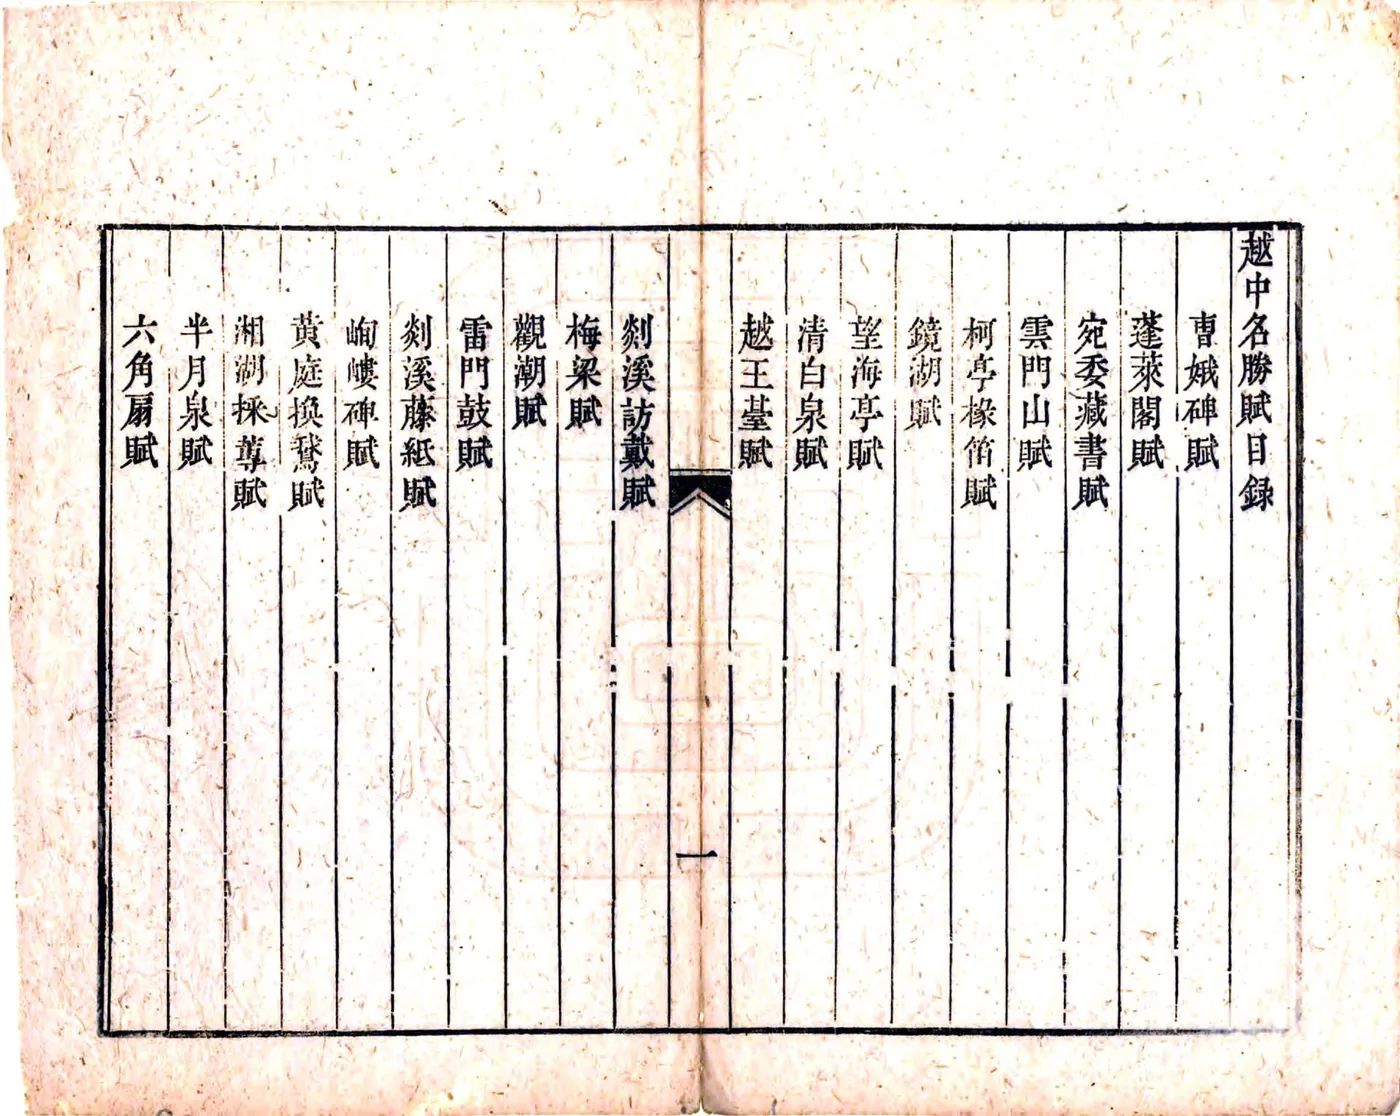 越中名勝賦目録
曹娥碑賦
蓬萊閣賦
宛委藏書賦
雲門山賦
柯亭椽笛賦
鏡湖賦
望海亭賦
清白泉賦
越王臺賦
一
剡溪訪戴賦
梅梁賦
觀潮賦
雷門鼓賦
剡溪藤紙賦
岣嶁碑賦
黃庭換鵞賦
湘湖採蓴賦
半月泉賦
六角扇賦